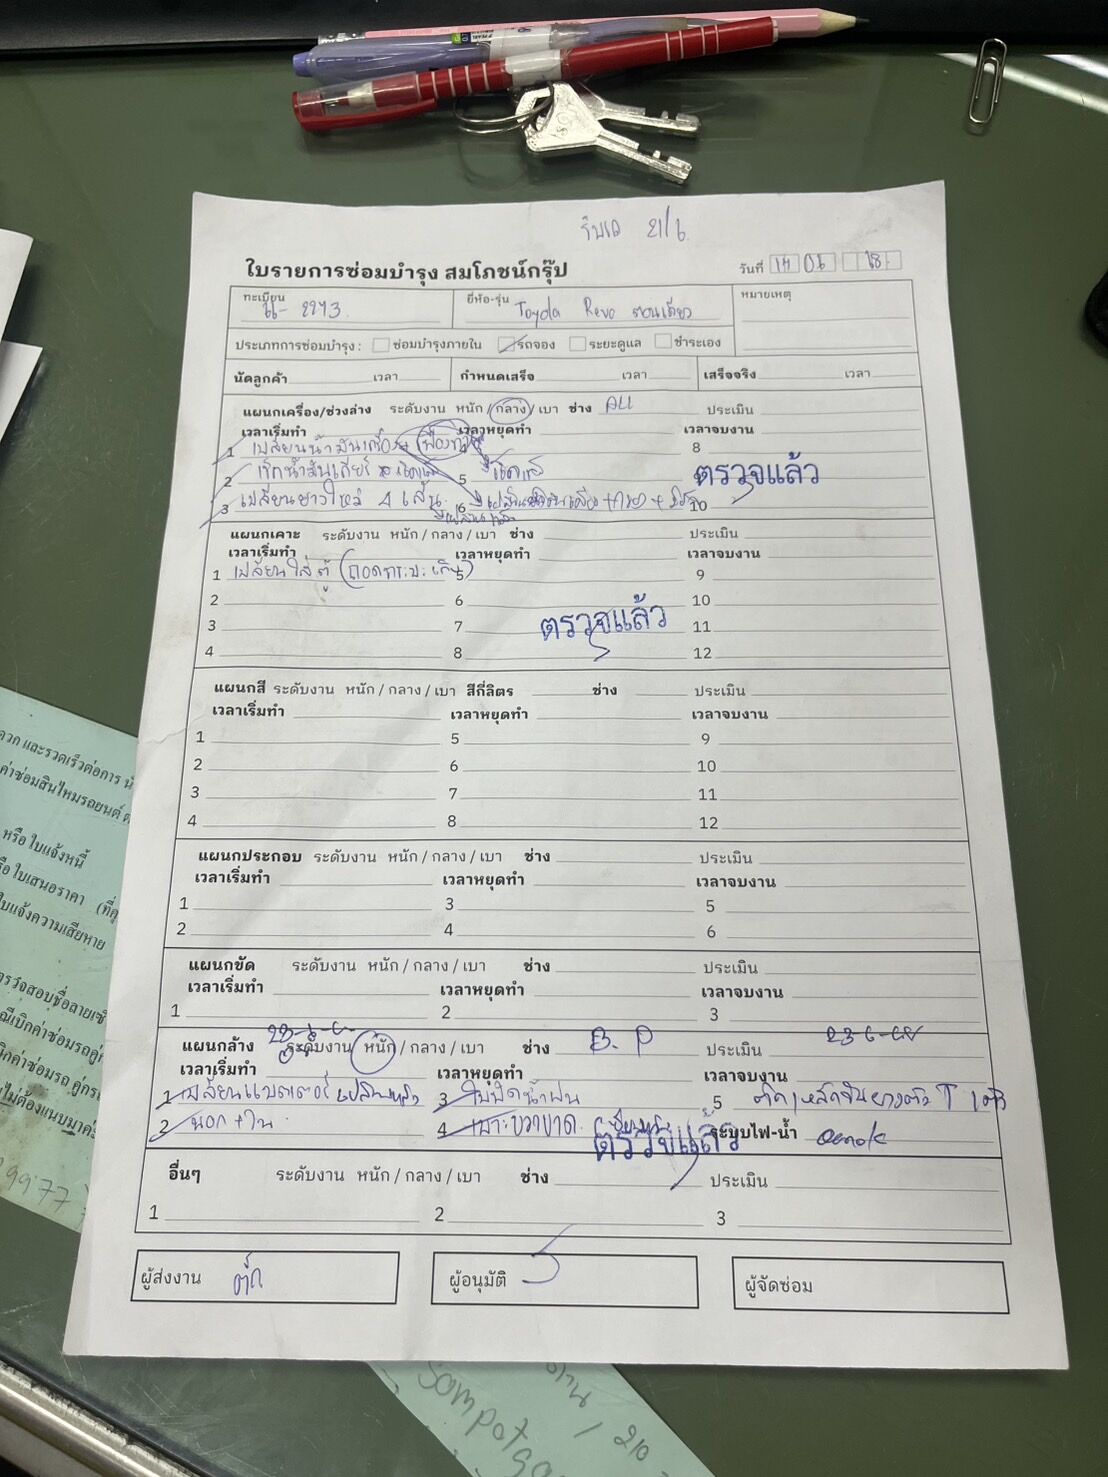 21/6
ใบรายการซ่อมบำรุง สมโภชน์กรุ๊ป
วันที่ 14 06 68
ทะเบียน 2293
ยี่ห้อ-รุ่น Toyota Revo ตอนเดียว
หมายเหตุ
ประเภทการซ่อมบำรุง : ซ่อมบำรุงภายใน รถจอง ระยะดูแล ชำระเอง
นัดลูกค้า เวลา กำหนดเสร็จ เวลา เสร็จจริง เวลา
แผนกเครื่อง/ช่วงล่าง ระดับงาน หนัก / กลาง / เบา ช่าง ALL ประเมิน
เวลาเริ่มทำ เวลาหยุดทำ เวลาจบงาน
1 เปลี่ยนน้ำมันเครื่อง + เฟืองท้าย 8
2 เช็กน้ำมันเกียร์ 5 ตรวจแล้ว
3 เปลี่ยนยางใหม่ 4 เส้น 6 10
แผนกเคาะ ระดับงาน หนัก / กลาง / เบา ช่าง ประเมิน
เวลาเริ่มทำ เวลาหยุดทำ เวลาจบงาน
1 เปลี่ยนใส่ตู้ (ถอดกระบะเดิม) 5 9
2 6 10
3 7 ตรวจแล้ว 11
4 8 12
แผนกสี ระดับงาน หนัก / กลาง / เบา สีกี่ลิตร ช่าง ประเมิน
เวลาเริ่มทำ เวลาหยุดทำ เวลาจบงาน
1 5 9
2 6 10
3 7 11
4 8 12
แผนกประกอบ ระดับงาน หนัก / กลาง / เบา ช่าง ประเมิน
เวลาเริ่มทำ เวลาหยุดทำ เวลาจบงาน
1 3 5
2 4 6
แผนกขัด ระดับงาน หนัก / กลาง / เบา ช่าง ประเมิน
เวลาเริ่มทำ เวลาหยุดทำ เวลาจบงาน
1 2 3
แผนกล้าง ระดับงาน หนัก / กลาง / เบา ช่าง B.P ประเมิน 23-6-68
เวลาเริ่มทำ เวลาหยุดทำ เวลาจบงาน
1 เปลี่ยนแบตเตอรี่ เปลี่ยนแล้ว 3 ใบปัดน้ำฝน 5
2 นอก + ใน 4 เบาะขวาขาด ตรวจแล้ว ระบบไฟ-น้ำ
อื่นๆ ระดับงาน หนัก / กลาง / เบา ช่าง ประเมิน
1 2 3
ผู้ส่งงาน ผู้อนุมัติ ผู้จัดซ่อม
หรือ ใบแจ้งหนี้
ใบแจ้งความเสียหาย
9977
210